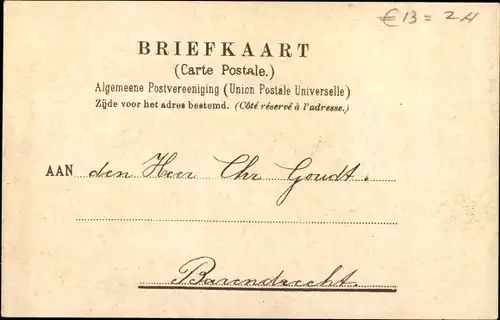 € 13 = 24
BRIEFKAART
(Carte Postale.)
Algemeene Postvereeniging (Union Postale Universelle)
Zijde voor het adres bestemd. (Côté réservé à l'adresse.)
AAN den Heer Chr Goudt.
Barendrecht.